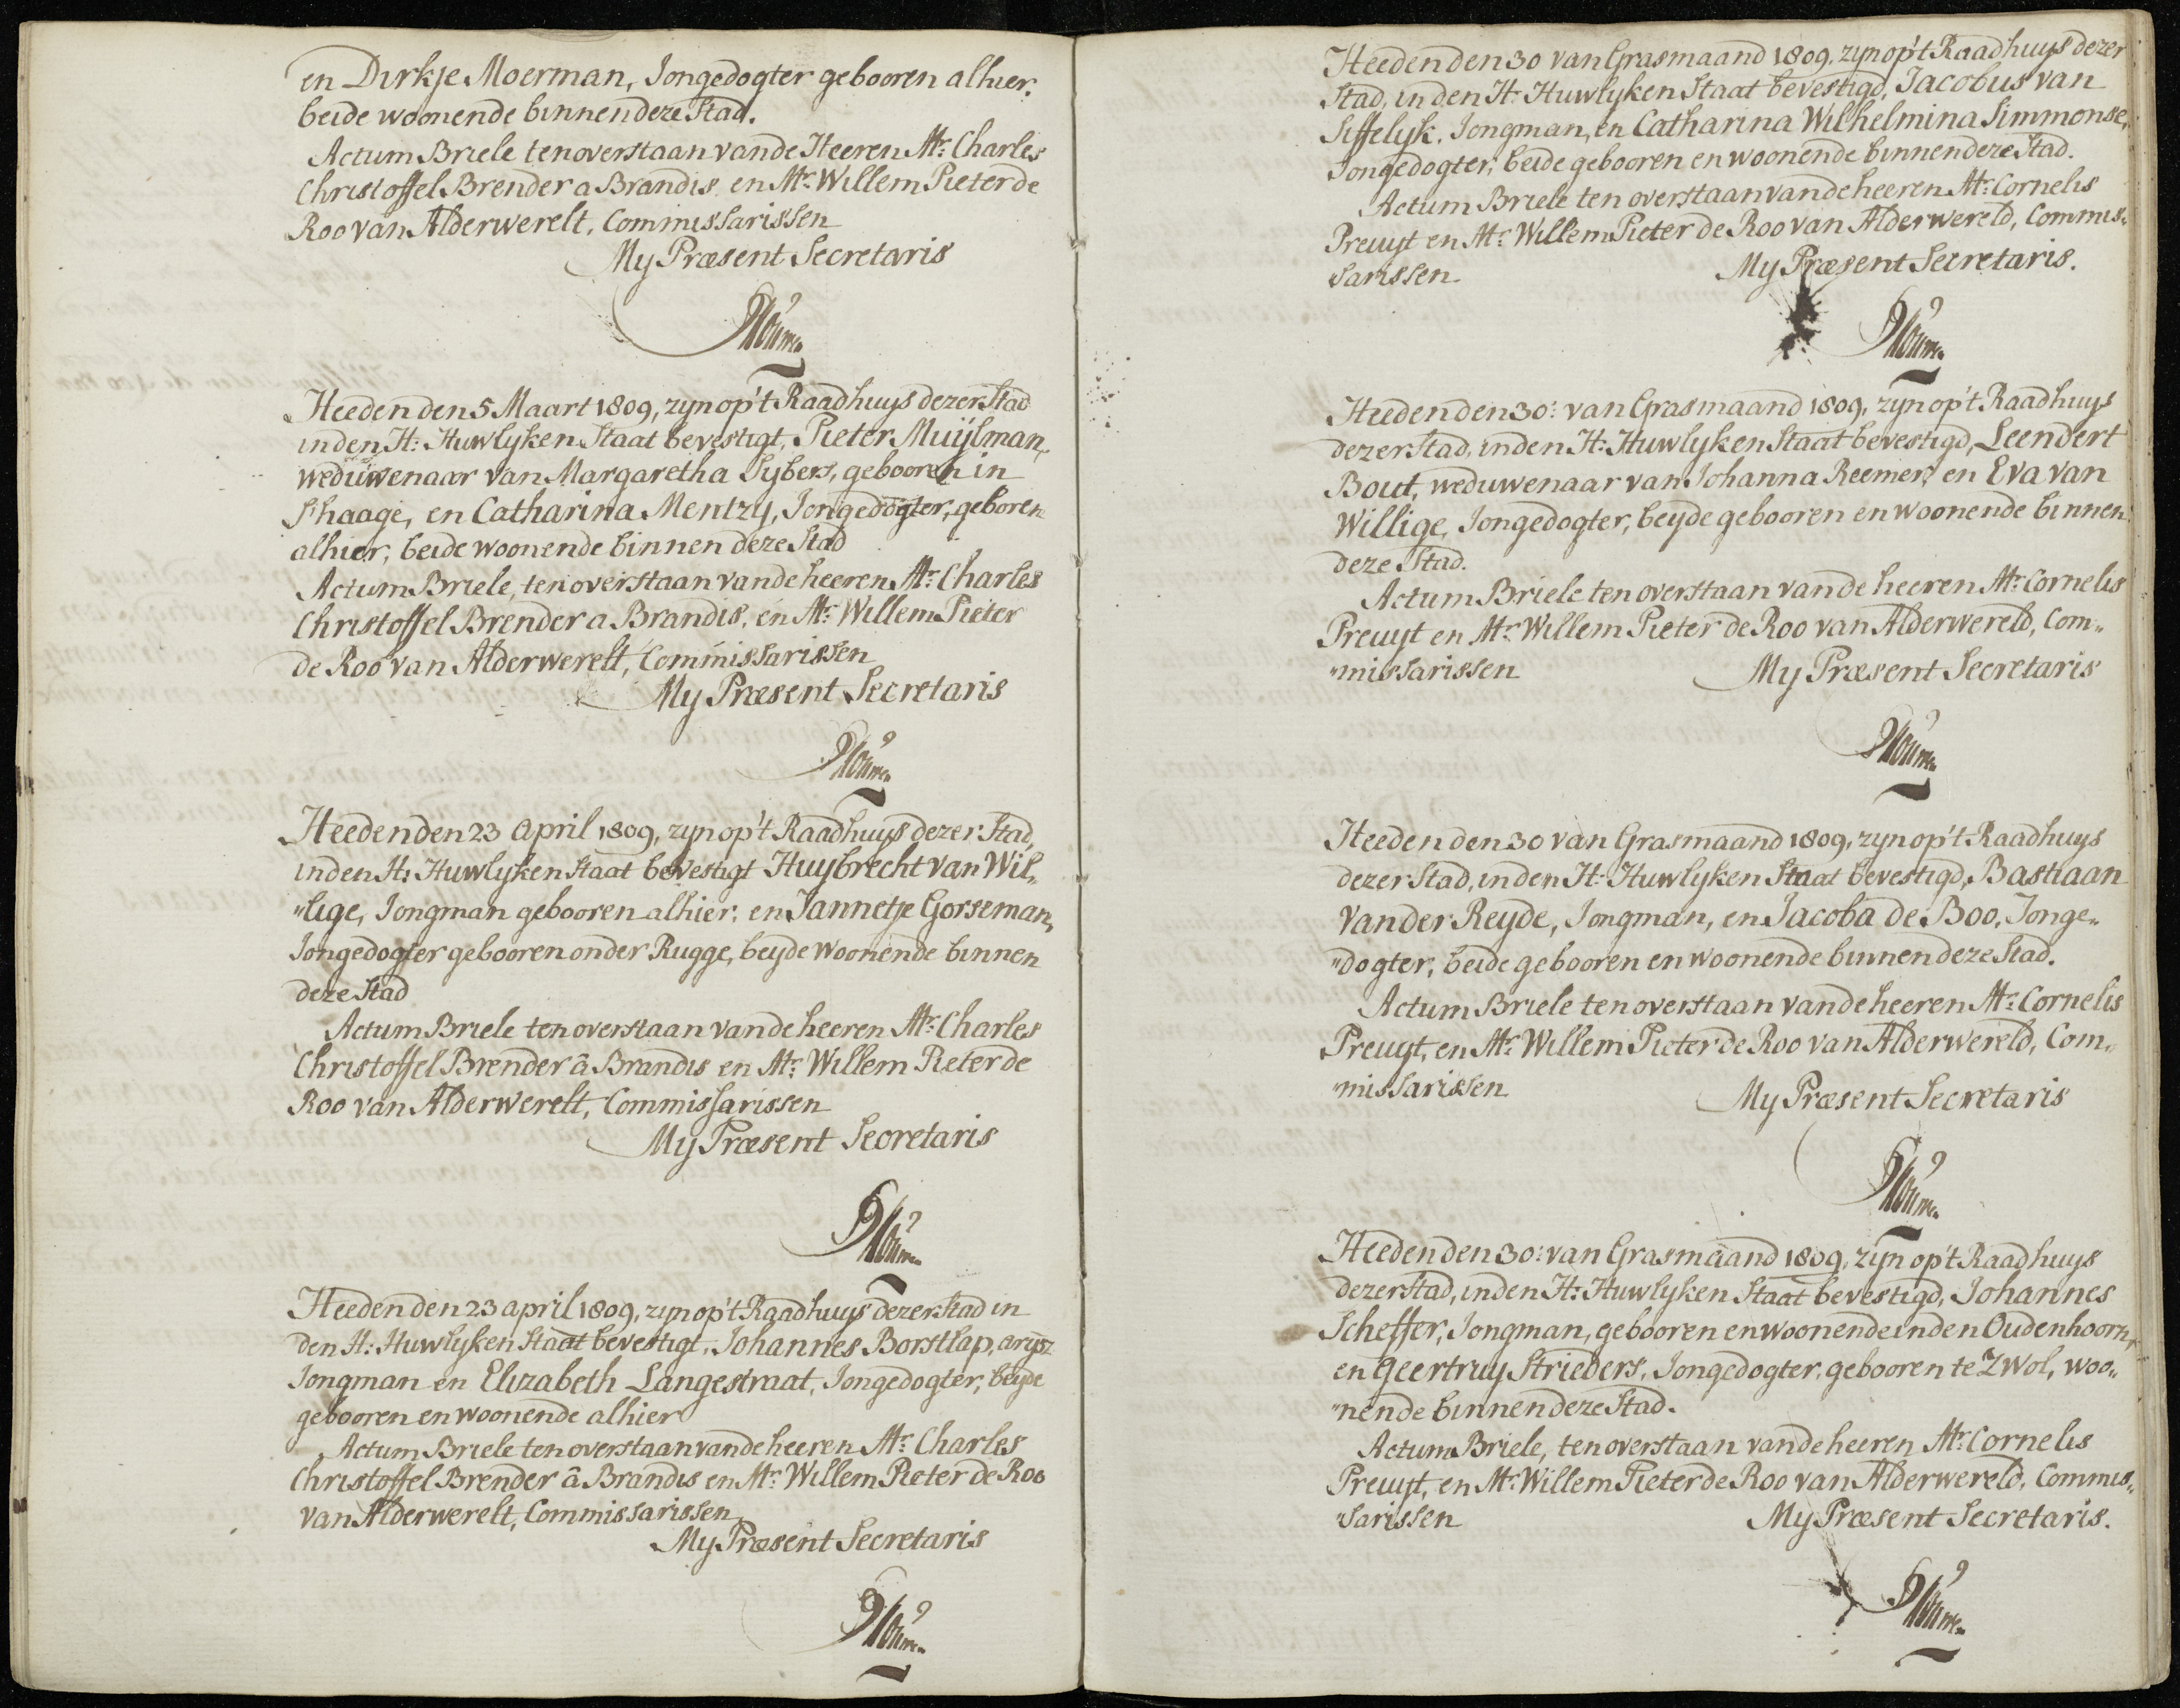 en Dirkje Moerman, Jongedogter gebooren alhier,
beide woonende binnen deze Stad.
Actum Briele ten overstaan van de Heeren Mr: Charles
Christoffel Brender a Brandis en Mr: Willem Pieter de
Roo van Alderwerelt, Commissarissen
My Præsent Secretaris
Heeden den 5 Maart 1809, zyn op't Raadhuys dezer Stad
in den H: Huwlyken Staat bevestigt, Pieter Muijlman,
weduwenaar van Margaretha Sybers, gebooren in
S'haage, en Catharina Mentzy, Jongedogter, geboren
alhier, beide woonende binnen deze Stad
Actum Briele, ten overstaan van de heeren Mr: Charles
Christoffel Brender a Brandis, en Mr: Willem Pieter
de Roo van Alderwerelt, Commissarissen
My Præsent Secretaris
Heeden den 23 April 1809, zyn op't Raadhuys dezer Stad,
in den H: Huwlyken Staat bevestigt Huybrecht van Wil„
„lige, Jongman gebooren alhier, en Jannetje Gorseman,
Jongedogter gebooren onder Rugge, beyde woonende binnen
deze Stad
Actum Briele ten overstaan van de heeren Mr: Charles
Christoffel Brender â Brandis en Mr: Willem Pieter de
Roo van Alderwerelt, Commissarissen
My Præsent Secretaris
Heeden den 23 april 1809, zyn op't Raadhuys dezer Stad in
den H: Huwlyken Staat bevestigt, Johannes Borstlap, arysz
Jongman en Elizabeth Langestraat, Jongedogter, beyde
gebooren en woonende alhier
Actum Briele ten overstaan van de heeren Mr: Charles
Christoffel Brender â Brandis en Mr: Willem Pieter de Roo
van Alderwerelt, Commissarissen
My Præsent Secretaris
Heeden den 30 van Grasmaand 1809, zyn op't Raadhuys dezer
Stad, in den H: Huwlyken Staat bevestigd, Jacobus van
Siffelyk, Jongman, en Catharina Wilhelmina Simmonse,
Jongedogter, beide gebooren en woonende binnen deze Stad.
Actum Briele ten overstaan van de heeren Mr: Cornelis
Preuyt en Mr: Willem Pieter de Roo van Alderwereld, Commis„
„sarissen My Præsent Secretaris.
Heeden den 30: van Grasmaand 1809, zyn op't Raadhuys
dezer Stad, in den H: Huwlyken Staat bevestigd, Leendert
Bout, weduwenaar van Johanna Reemer, en Eva van
Willige, Jongedogter, beyde gebooren en woonende binnen
deze Stad.
Actum Briele ten overstaan van de heeren Mr: Cornelis
Preuyt en Mr: Willem Pieter de Roo van Alderwereld, Com„
„missarissen My Præsent Secretaris
Heeden den 30 van Grasmaand 1809, zyn op't Raadhuys
dezer Stad, in den H: Huwlyken Staat bevestigd, Bastiaan
van der Reyde, Jongman, en Jacoba de Boo, Jonge„
„dogter, beide gebooren en woonende binnen deze Stad.
Actum Briele ten overstaan van de heeren Mr: Cornelis
Preuyt, en Mr: Willem Pieter de Roo van Alderwereld, Com„
„missarissen My Præsent Secretaris
Heeden den 30: van Grasmaand 1809, zyn op't Raadhuys
dezer Stad, in den H: Huwlyken Staat bevestigd, Johannes
Scheffer, Jongman, gebooren en woonende in den Oudenhoorn,
en Geertruy Strieders, Jongedogter, gebooren te Zwol, woo„
„nende binnen deze Stad.
Actum Briele, ten overstaan van de heeren Mr: Cornelis
Preuyt, en Mr: Willem Pieter de Roo van Alderwereld, Commis„
„sarissen My Præsent Secretaris.